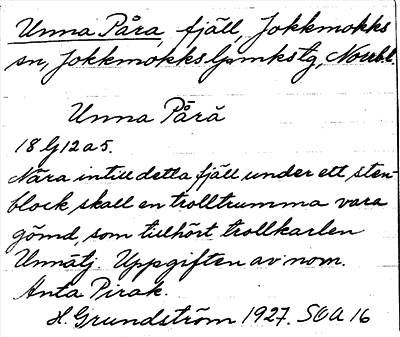 Unna Påra, fjäll, Jokkmokks
sn, Jokkmokks lpmkstg, Norrb.l.
Unna Pārā
18 G12 a 5.
Nära intill detta fjäll under ett sten-
block skall en trolltrumma vara
gömd, som tillhört trollkarlen
Unnātj. Uppgiften av nom.
Anta Pirak.
H. Grundström 1927. SOA 16